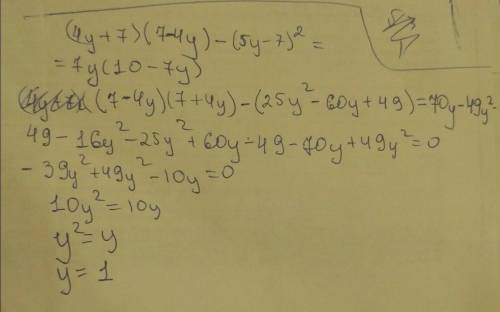 (4y+7)(7-4y)-(5y-7)²=
=7y(10-7y)
(7-4y)(7+4y)-(25y²-60y+49)=70y-49y²
49-16y²-25y²+60y-49-70y+49y²=0
-39y²+49y²-10y=0
10y²=10y
y²=y
y=1